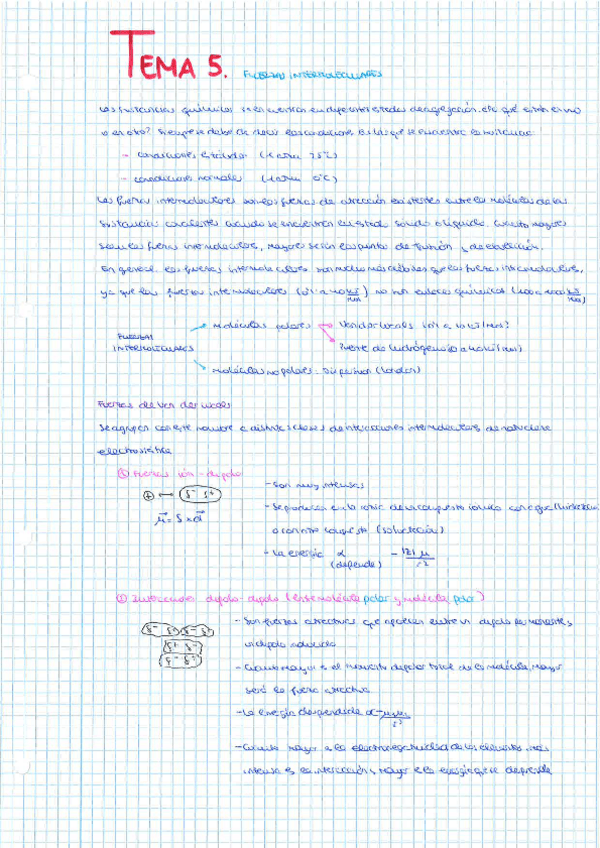 TEMA 5. FUERZAS INTERMOLECULARES
Las sustancias químicas se encuentran en diferentes estados de agregación. ¿De qué están en uno
o en otro? Siempre se debe de las condiciones en las que se encuentra la sustancia:
→ condiciones estándar (1 atm 25°C)
→ condiciones normales (1 atm 0°C)
Las fuerzas intermoleculares son las fuerzas de atracción existentes entre las moléculas de las
sustancias covalentes cuando se encuentran en estado sólido o líquido. Cuanto mayores
sean las fuerzas intermoleculares, mayores serán los puntos de fusión y de ebullición.
En general las fuerzas intermoleculares son mucho más débiles que las fuerzas intramoleculares,
ya que las fuerzas intermoleculares no son enlaces químicos
moléculas polares → Van der Waals
FUERZAS
INTERMOLECULARES
Puente de hidrógeno
moléculas no polares: Dispersión (London)
Fuerzas de Van der Waals
Se agrupan con este nombre a distintas clases de interacciones intermoleculares de naturaleza
electrostática
① Fuerzas ión-dipolo
- Son muy intensas
⊕ ↔ δ- δ+
- Se producen en la de un compuesto iónico con agua
μ = δ × d
u otro compuesto (solvatación)
- La energía α - |z| μ / r²
(depende)
② Interacciones dipolo-dipolo (entre molécula polar y molécula polar)
δ- δ+ δ- δ+
- Son fuerzas atractivas que aparecen entre un dipolo permanente y
δ+ δ-
un dipolo
δ- δ+
- Cuanto mayor es el momento dipolar total de la molécula, mayor
será la fuerza atractiva
- La energía desprendida α - μ₁μ₂ / r³
- Cuanto mayor es la electronegatividad de los elementos, más
intensa es la interacción y mayor es la energía que se desprende